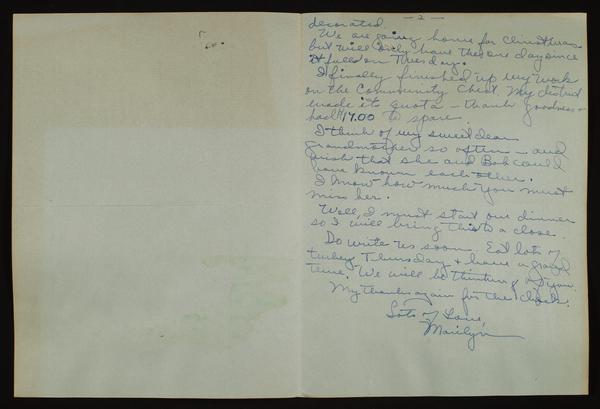 decorated. — 2 —
We are going home for Christmas
but will only have the one day since
it falls on Tuesday.
I finally finished up my work
on the Community Chest. My district
made its quota – thank goodness &
had $17.00 to spare.
I think of my sweet dear
grandmother so often – and
wish that she and Bob could
have known each other.
I know how much you must
miss her.
Well, I must start our dinner
so I will bring this to a close.
Do write us soon. Eat lots of
turkey Thursday & have a good
time. We will be thinking of you.
My thanks again for the check.
Lots of Love,
Marilyn